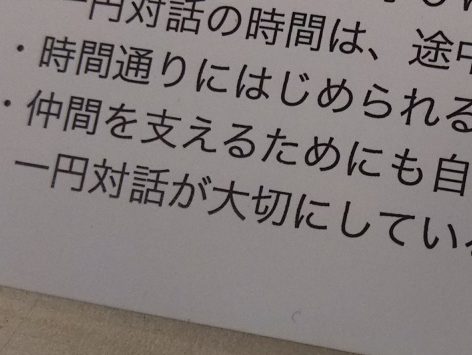 一円対話の時間は、途中
・時間通りにはじめられる
・仲間を支えるためにも自
一円対話が大切にしている